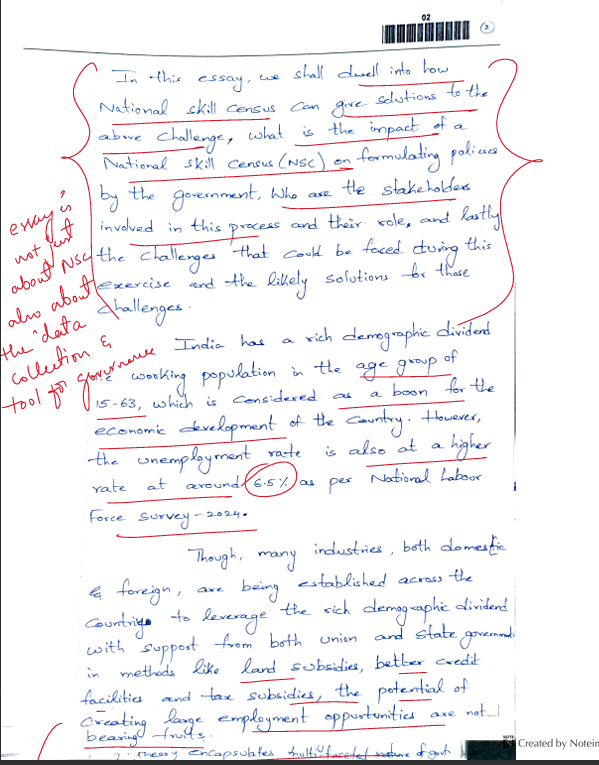 02
2
In this essay, we shall dwell into how
National skill census can give solutions to the
above challenge, what is the impact of a
National skill census (NSC) on formulating policies
by the government, Who are the stakeholders
involved in this process and their role, and lastly
the challenges that could be faced during this
exercise and the likely solutions for those
challenges.
essay is
not just
about NSC
also about
the "data
collection &
tool for governance
India has a rich demographic dividend
working population in the age group of
15-63, which is considered as a boon for the
economic development of the country. However,
the unemployment rate is also at a higher
rate at around 6.5% as per National Labour
Force Survey-2024.
Though, many industries, both domestic
& foreign, are being established across the
country to leverage the rich demographic dividend
with support from both union and state governments
in methods like land subsidies, better credit
facilities and tax subsidies, the potential of
creating large employment oppurtunities are not
bearing fruits.
theory encapsulates multifaceted nature of govt
NOTE
Created by Notein